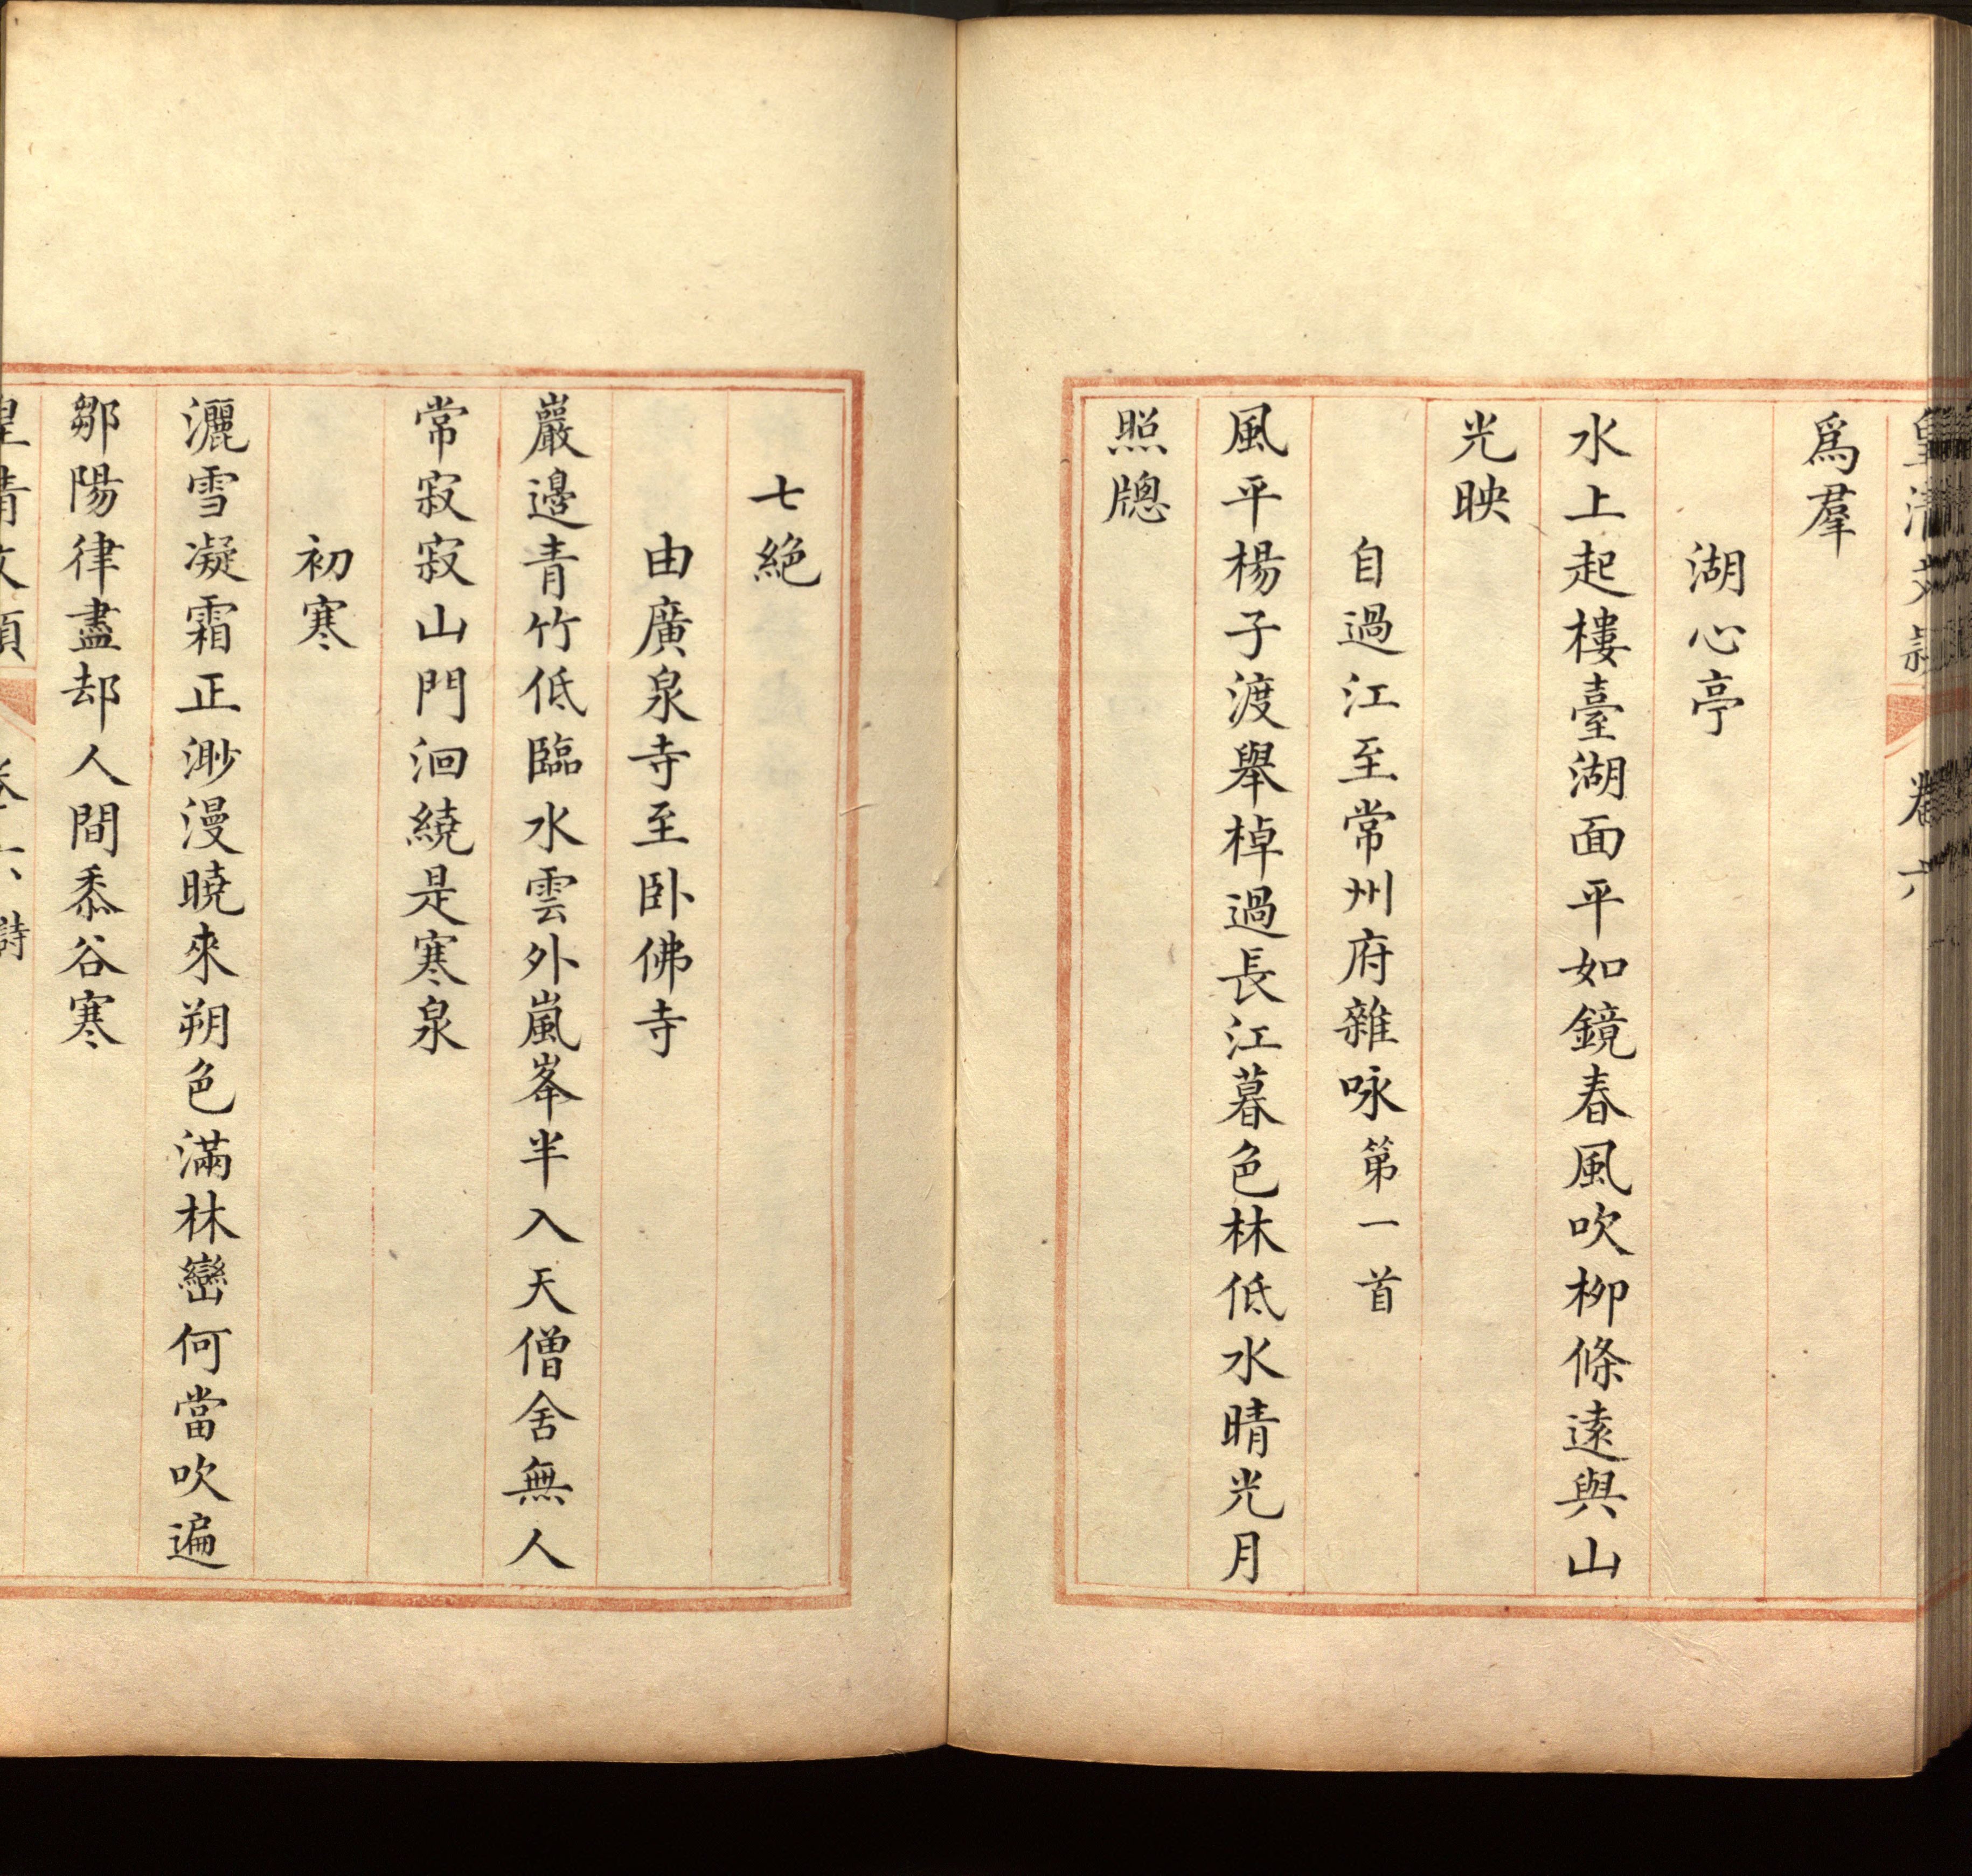 皇清文穎
卷六
爲羣
湖心亭
水上起樓臺湖面平如鏡春風吹栁條逺與山
光映
自過江至常州府雜咏第一首
風平楊子渡舉棹過長江暮色林低水晴光月
照牕
七絶
由廣泉寺至卧佛寺
巖邊青竹低臨水雲外嵐峯半入天僧舍無人
常寂寂山門洄繞是寒泉
初寒
灑雪凝霜正渺漫曉來朔色滿林巒何當吹遍
鄒陽律盡却人間黍谷寒
皇清文穎
卷六 詩